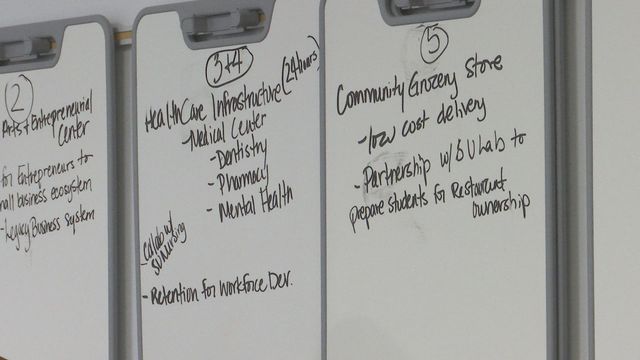 2
Arts + Entrepreneurial
Center
for Entrepreneurs to
small business ecosystem
- Legacy Business System
3+4
HealthCare Infrastructure (24 hours)
- Medical Center
- Dentistry
- Pharmacy
- Mental Health
- Collab w/
SU Nursing
- Retention for Workforce Dev.
5
Community Grocery Store
- low cost delivery
- Partnership w/ SU Lab to
prepare students for Restaurant
ownership